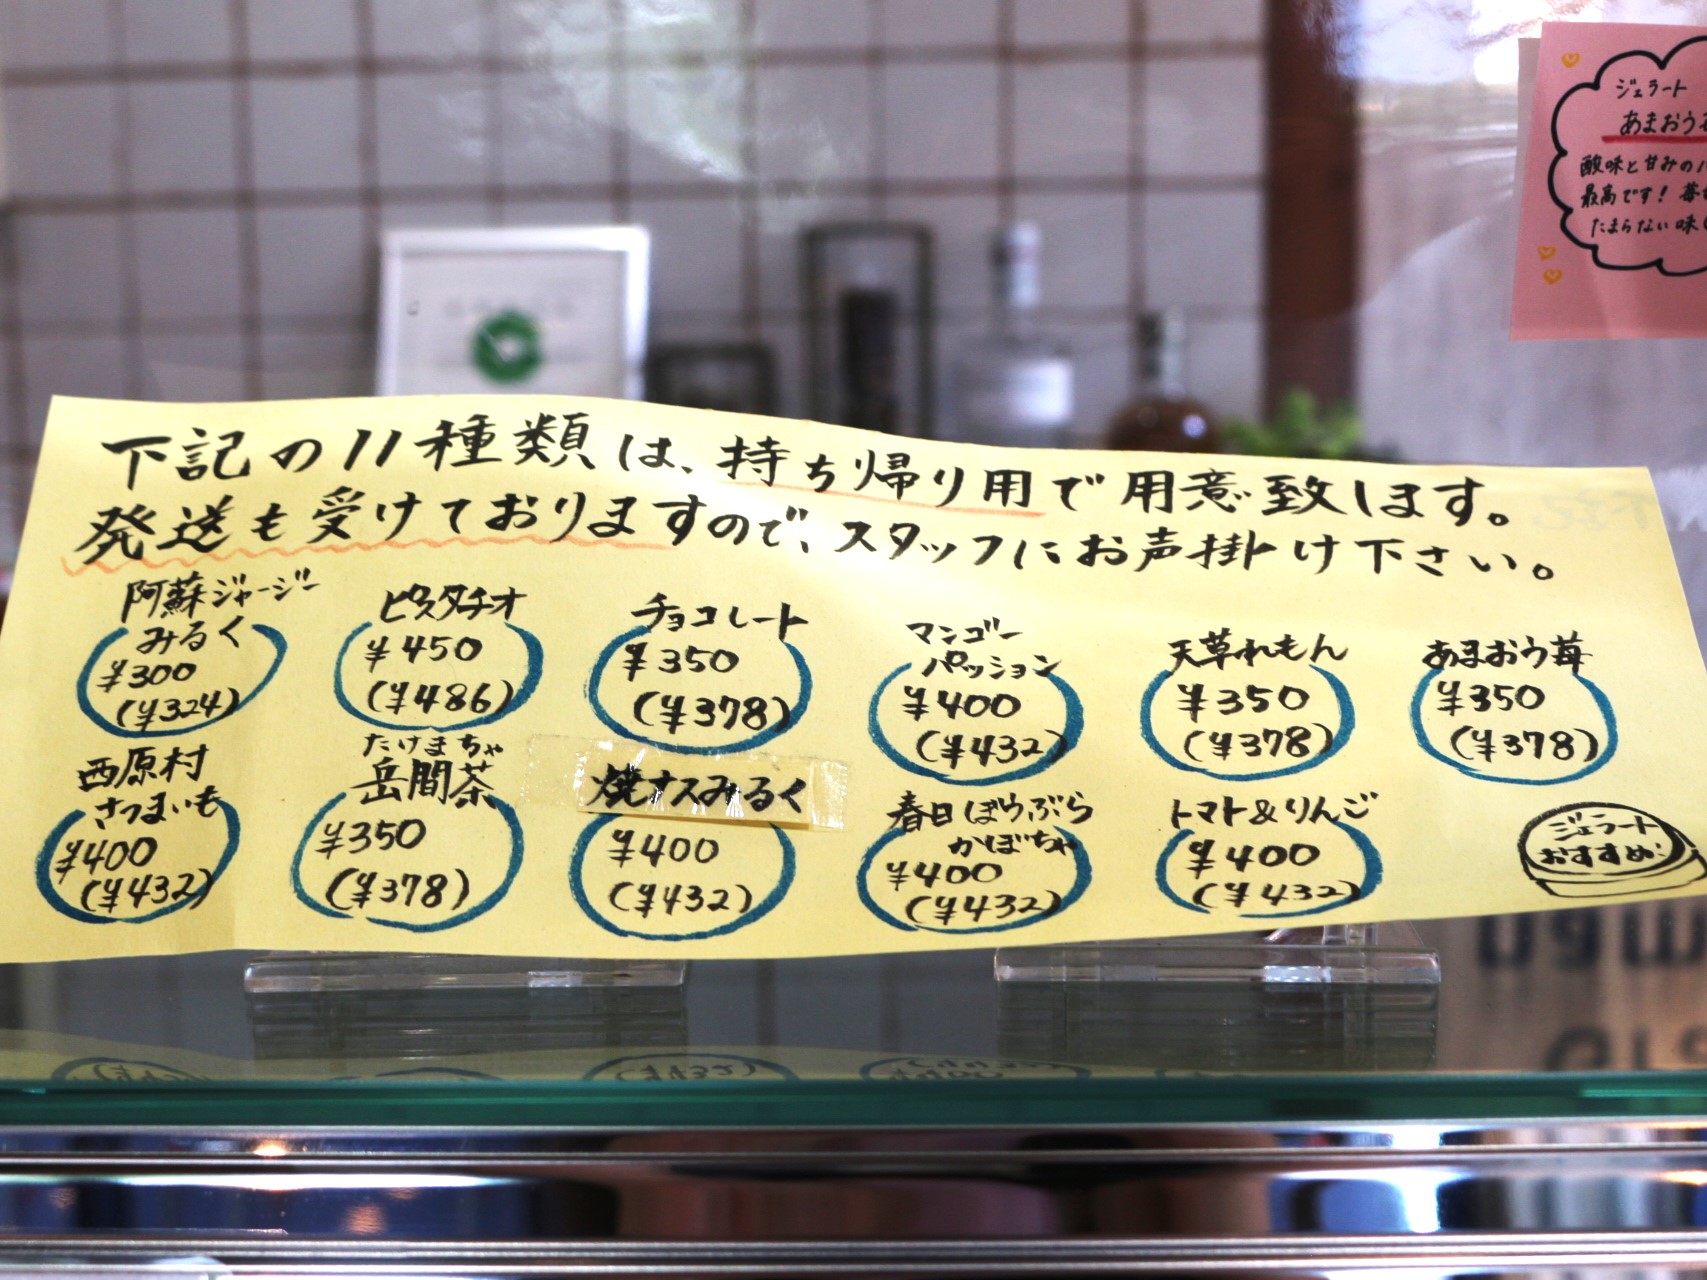 下記の11種類は、持ち帰り用で用意致します。
発送も受けておりますので、スタッフにお声掛け下さい。
阿蘇ジャージー
みるく
¥300
(¥324)
ピスタチオ
¥450
(¥486)
チョコレート
¥350
(¥378)
マンゴー
パッション
¥400
(¥432)
天草れもん
¥350
(¥378)
あまおう苺
¥350
(¥378)
西原村
さつまいも
¥400
(¥432)
たけまちゃ
岳間茶
¥350
(¥378)
焼ナスみるく
¥400
(¥432)
春日ぼうぶら
かぼちゃ
¥400
(¥432)
トマト&りんご
¥400
(¥432)
ジェラート
おすすめ!
ジェラート
あまおう
酸味と甘みの
最高です!
たまらない味